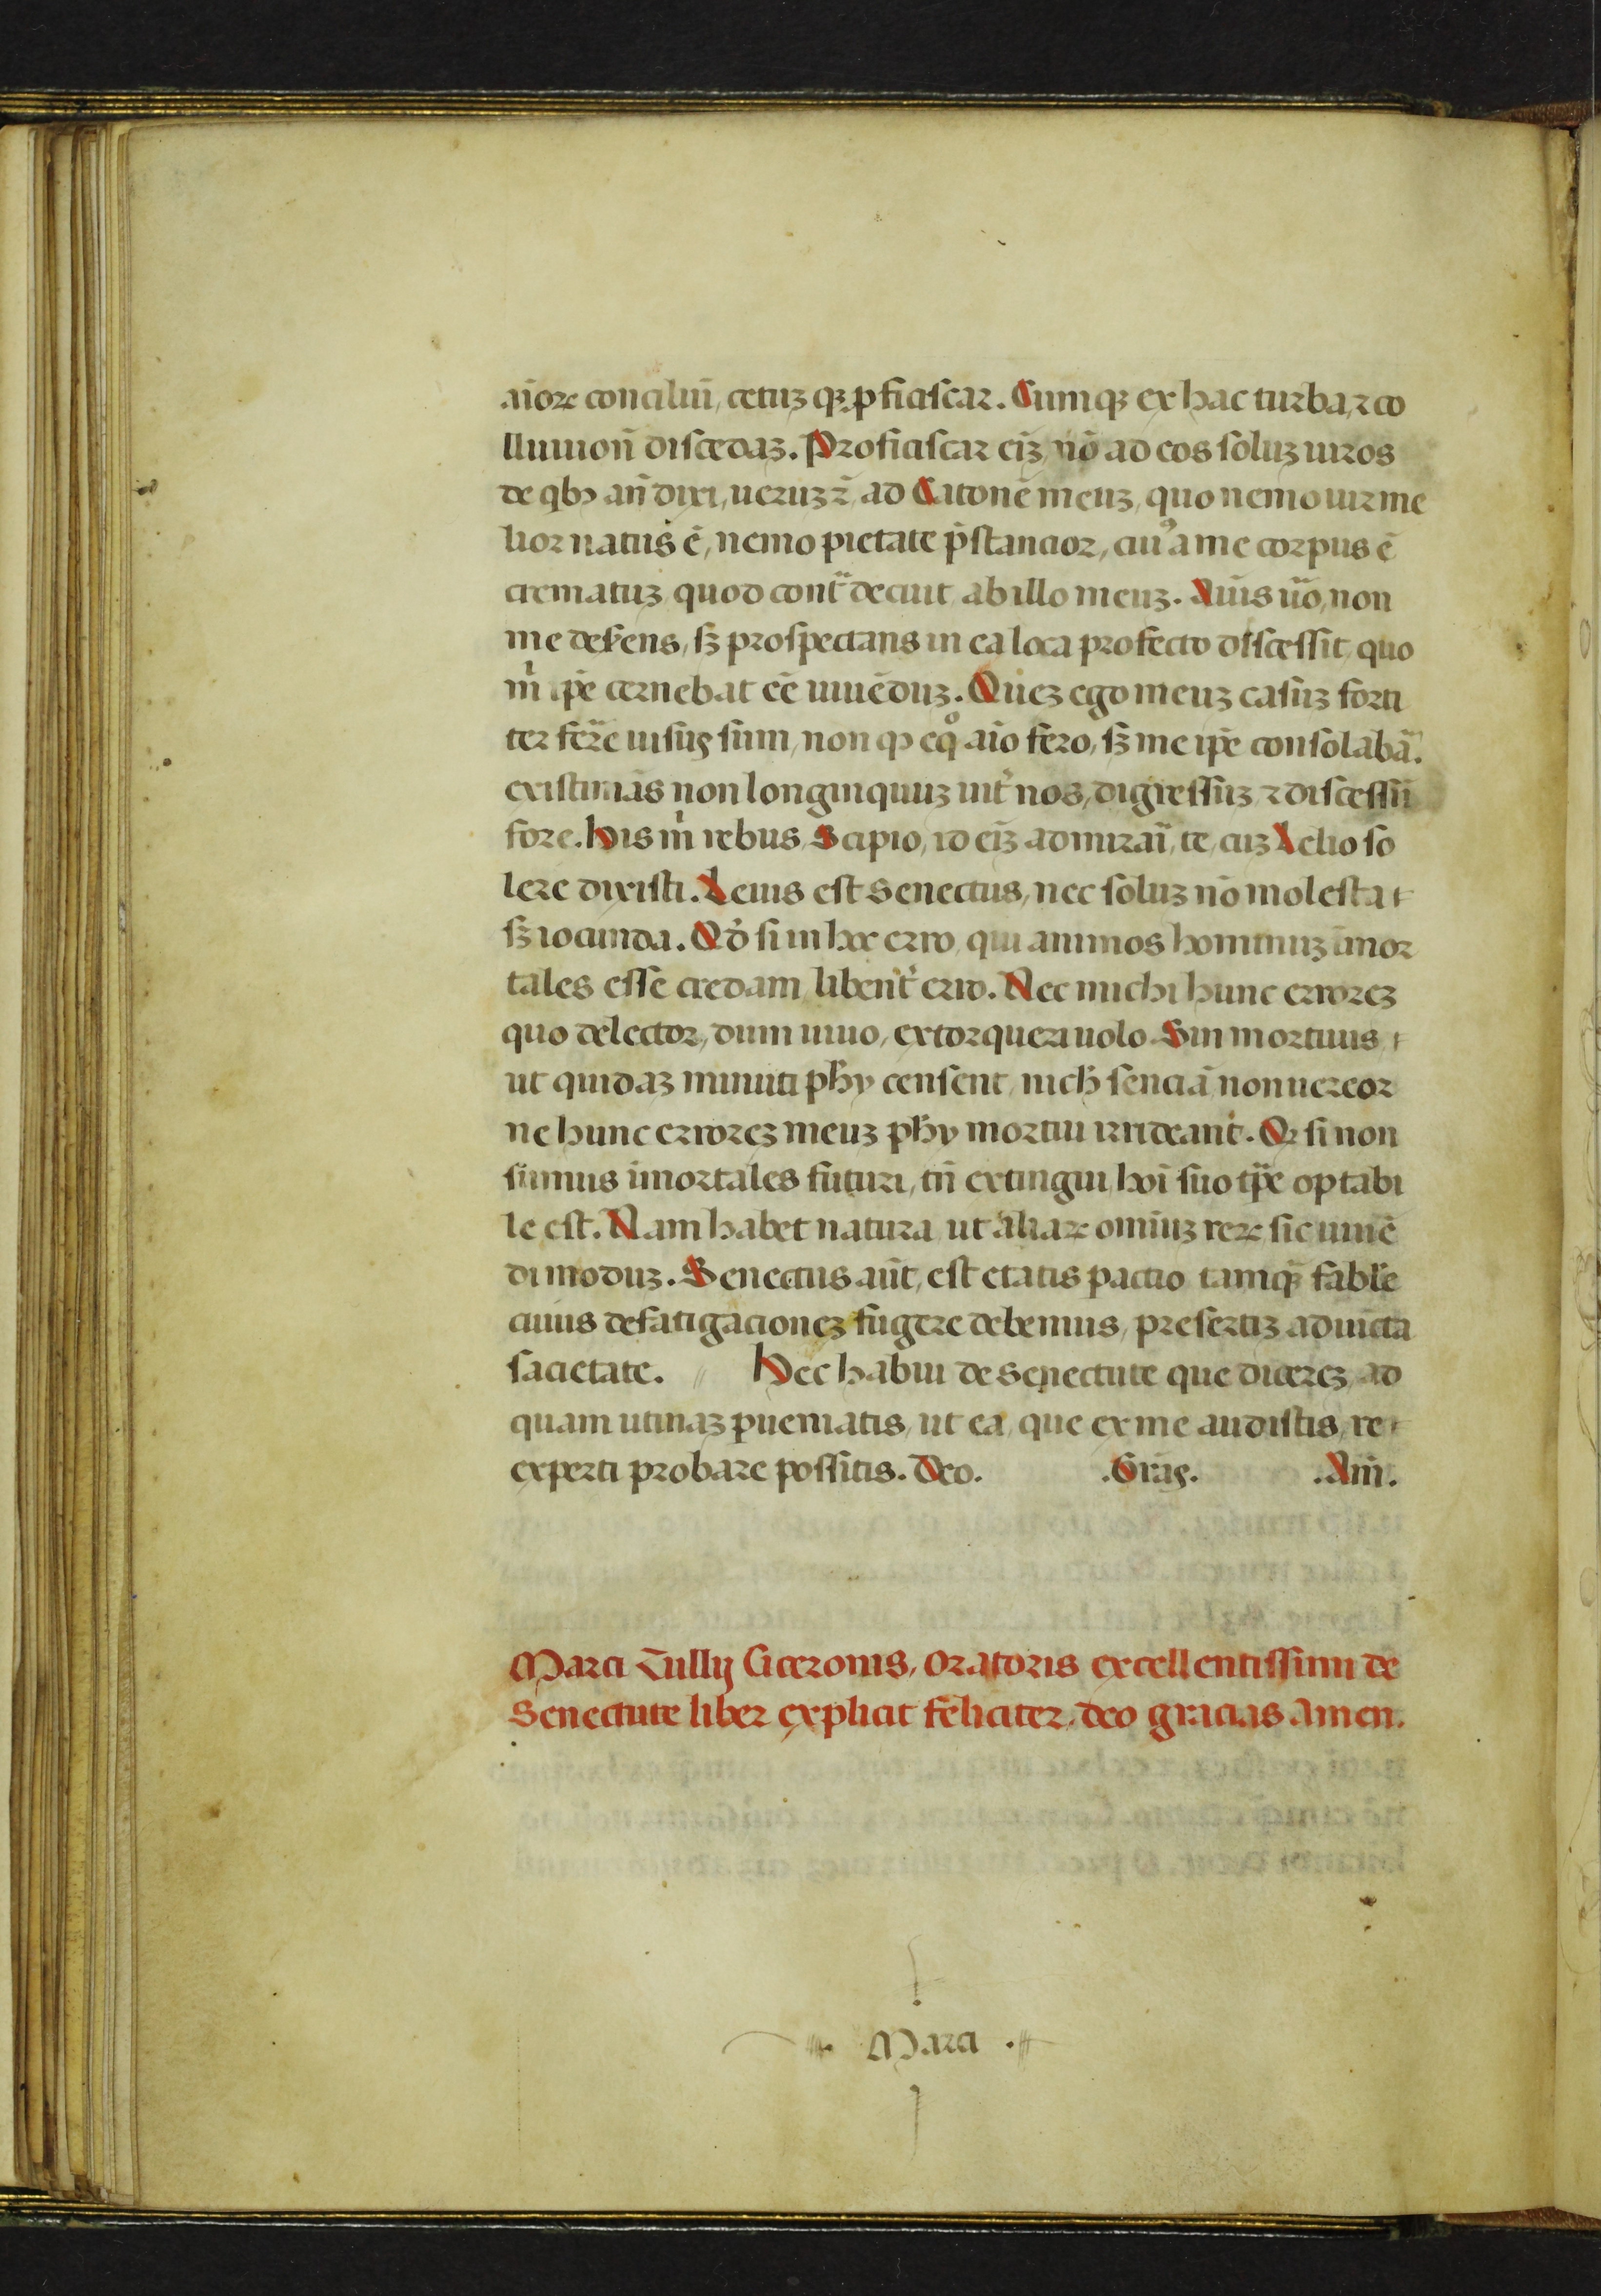 aīoꝝ conciliū, cetuꝫ qꝫ ꝓficiscar. Cumqꝫ ex hac turba, ⁊ co
lluuionē discedaꝫ. Proficiscar eīꝫ nō ad eos soluꝫ uiros
de qbꝫ an̄ dixi, ueruꝫ ⁊̄ ad Catonē meuꝫ, quo nemo uir me
lior natus ē, nemo pietate p̄stancior, cuiꝰ a me corpus ē
crematuꝫ quod contᵃ decuit ab illo meuꝫ. Aīus ūo, non
me deserens, sꝫ prospectans in ea loca profecto discessit quo
m̍ ip̄e cernebat eē uiuēduꝫ. Quez ego meuꝫ casuꝫ forti
ter ferre uisus sum, non qꝫ eqͦ aīo fero, sꝫ me ip̄e consolabar.
existimās non longinquuꝫ int̍ nos, digressuꝫ ⁊ discessū
fore. His m̍ rebus Scipio, id eīꝫ admirari, te, cuꝫ Lelio so
lere dixisti. Leuis est Senectus, nec soluꝫ nō molesta
sꝫ iocunda. Qd̍ si in hoc erro, qui animos hominuꝫ īmor
tales esse credam libent̍ erro. Nec michi hunc errorez
quo delector, dum uiuo, extorqueri uolo. Sin mortuus,
ut quidaꝫ minuti phȳ censent nich̍ senciā non uereor
ne hunc errorez meuꝫ phȳ mortui irrideant. Qꝫ si non
sumus īmortales futuri, tn̄ extingui, hoī suo tp̄e optabi
le est. Nam habet natura, ut aliaꝝ omniuꝫ reꝝ sic uiuē
di moduꝫ. Senectus aūt, est etatis pactio tamqꝫ fable
cuius defatigacionez fugere debemus, presertiꝫ adiūcta
sacietate. // Hec habui de Senectute que dicerez, ad
quam utinaꝫ ꝑueniatis, ut ea, que ex me audistis, re
experti probare possitis. Deo. .Grās. .Am̄.
Marci Tullij Ciceronis, oratoris excellentissimi de
Senectute liber explicit feliciter, deo gracias Amen.
Marci